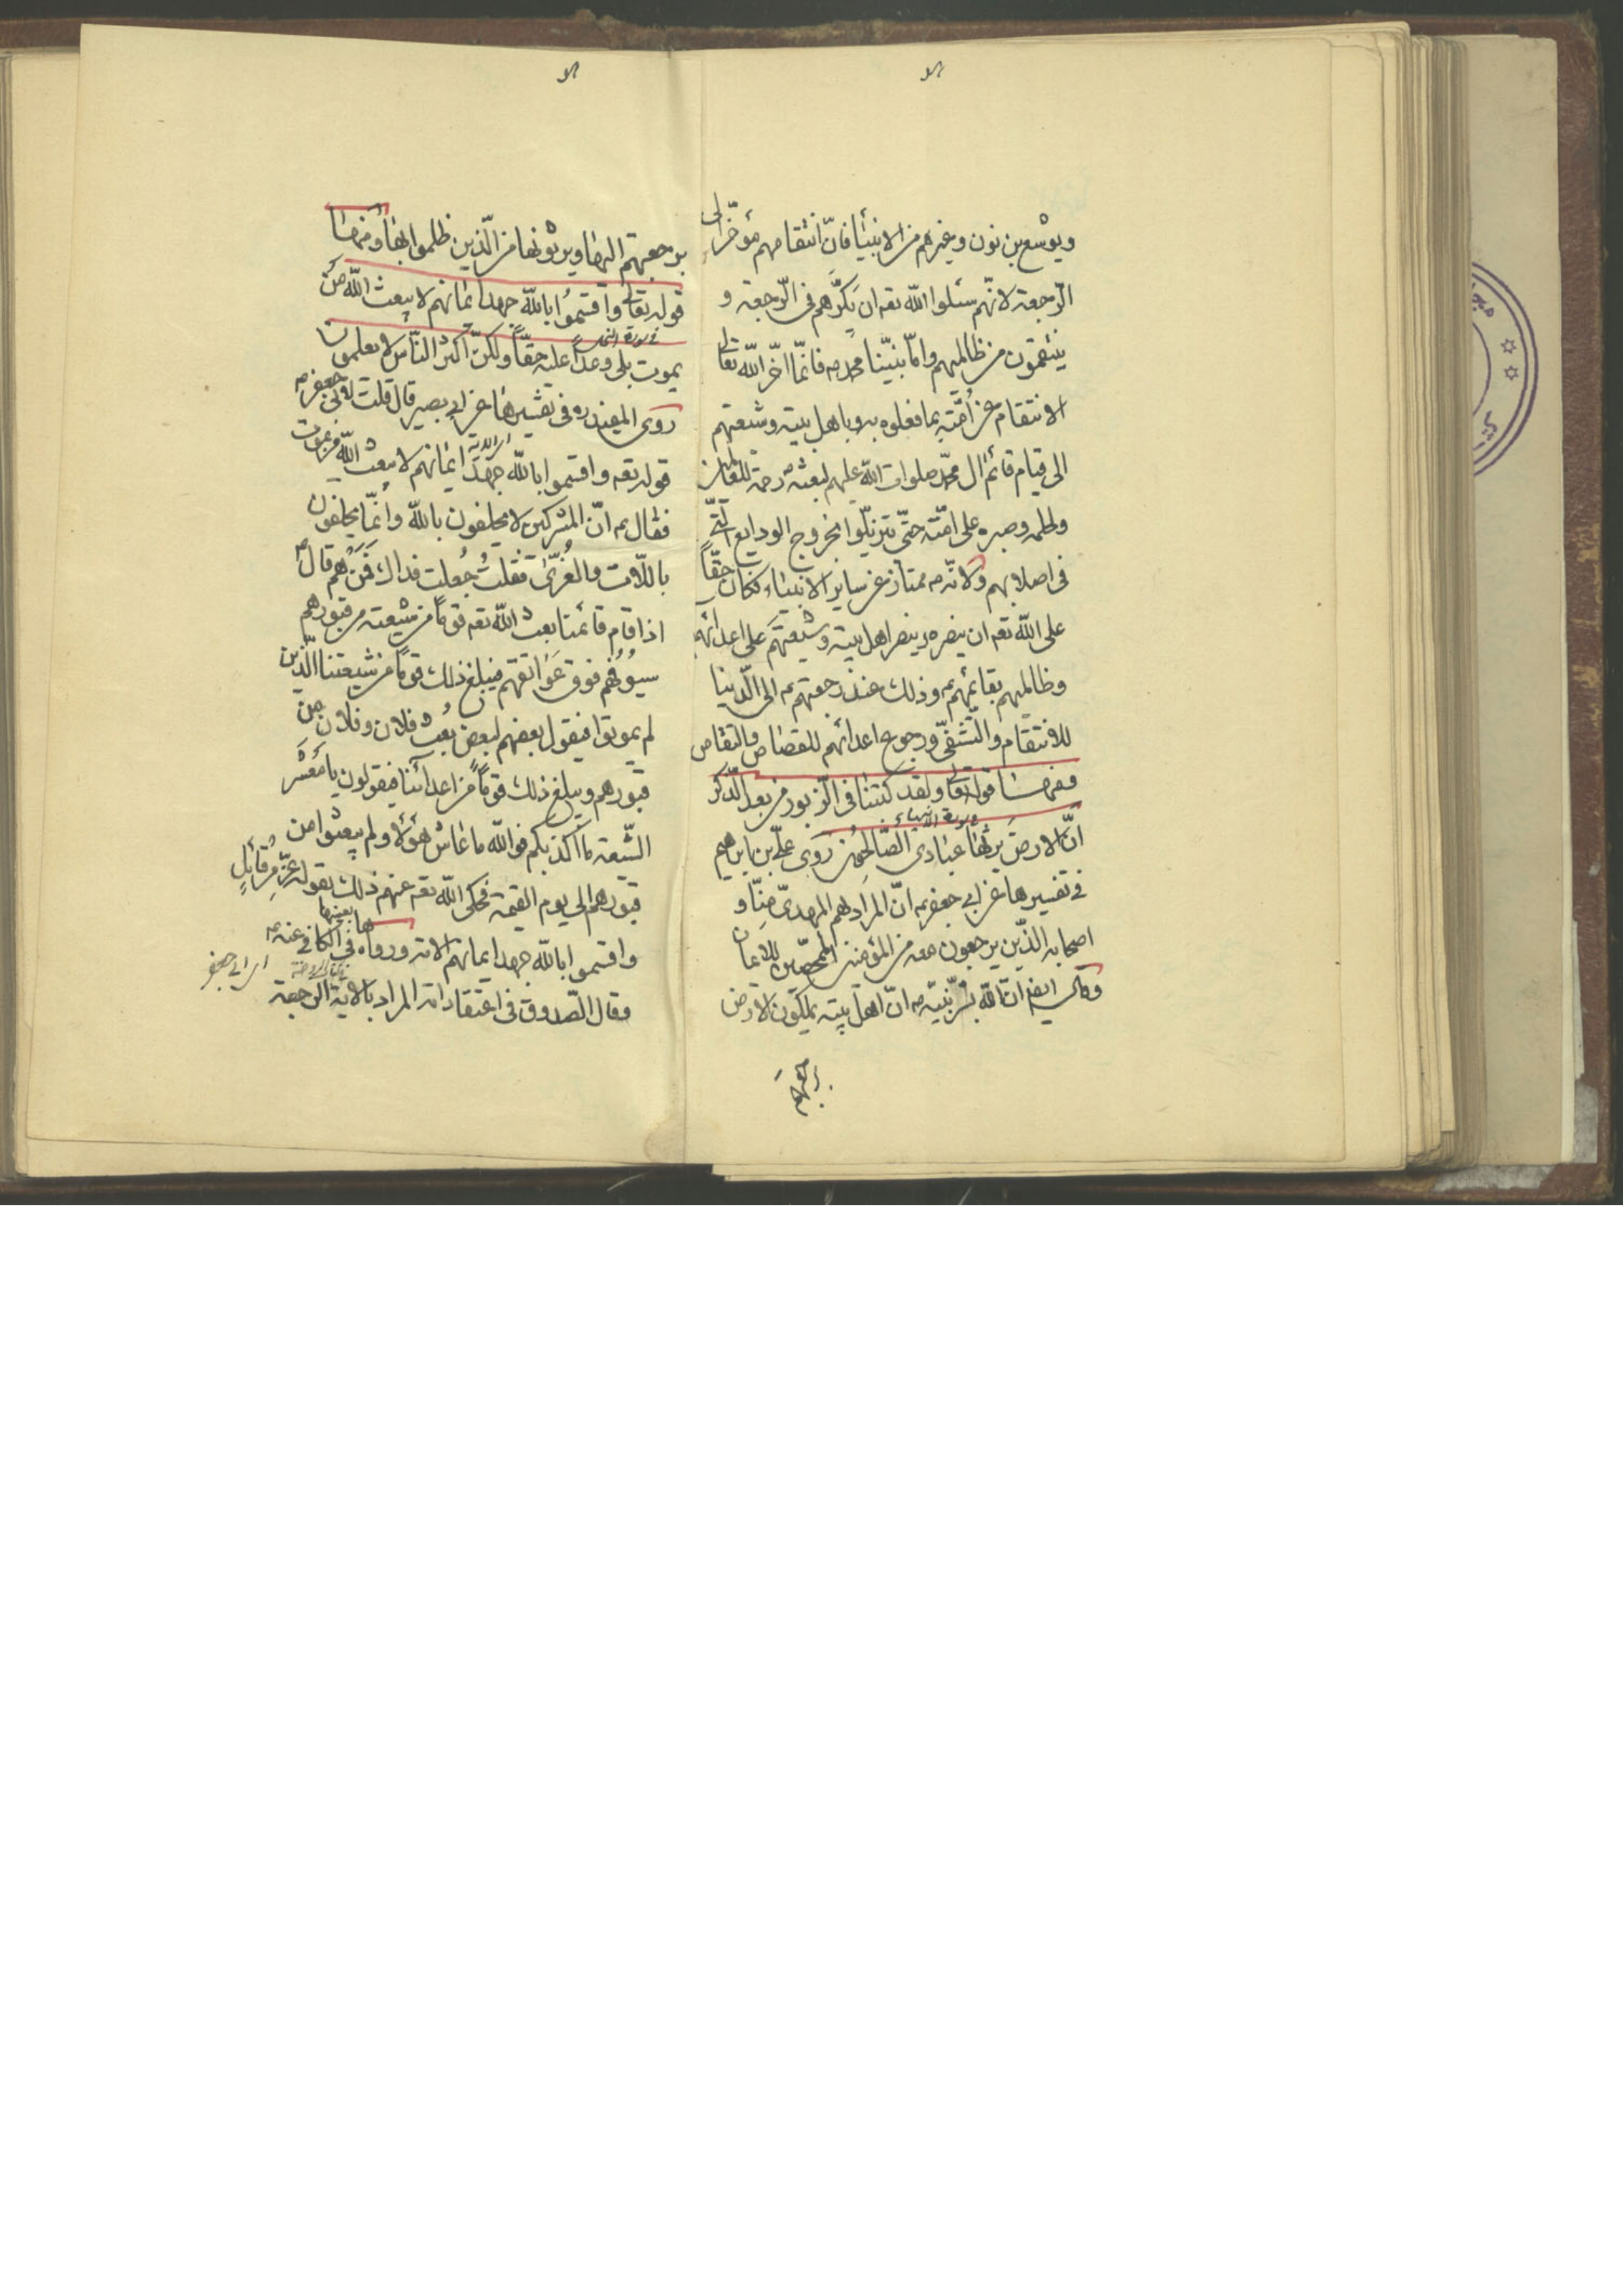 ويوشع بن نون وغيرهم من الانبياء فانّ انتقامهم مؤخّر الى
الرّجعة لانّهم سئلوا اللّه تعه ان يكرّهم فى الرّجعة و
ينتقمون من ظالميهم وامّا نبيّنا محمد ص فانّما اخّر اللّه تعالى
الانتقام عن أمّته بما فعلوه به وباهل بيته وشيعتهم
الى قيام قائم ال محمّد صلوات اللّه عليهم لبعثه رحمة للعالمين
ولحلمه وصبره على امّته حتّى يتزيّلوا بخروج الودايع الّتى
فى اصلابهم ولانّه ص ممتاز عن ساير الانبياء فكان حقّاً
على اللّه تعه ان ينصره وينصر اهل بيته وشيعتهم على اعدائهم
وظالميهم بقائمهم ع وذلك عند رجعتهم ع الى الدّنيا
للانتقام والتّشفّى ورجوع اعدائهم للقصاص والتقاص
فمنهــا قوله تعالى ولقد كتبنا فى الزّبور من بعد الذّكر
فى سورة الانبياء
انّ الارض يرثها عبادى الصّالحون روى علىّ بن ابراهيم
فى تفسيرها عن ابى جعفر ع انّ المراد بهم المهدىّ منّا و
اصحابه الذّين يرجعون معه من المؤمنين الممحّصين للايمان
وقال ايضا انّ اللّه بشّر نبيّه ص انّ اهل بيته يملكون الارض
برجعتهم
برجعتهم اليها ويرثونها من الّذين ظلموا بها ومنهــا
قوله تعالى واقسمُوا باللّه جهد ايمانهم لا يبعث اللّه من
فى سورة النحل
يموت بلى وعداً عليه حقّاً ولكنّ اكثر النّاس لا يعلمون
روى المفيد ره فى تفسيرها عن ابى بصير قال قلت لابى جعفر ع
قوله تعه واقسموا باللّه جهد ايمانهم لا يبعث اللّه من يموت
فقال ع انّ المشركين لا يحلفون باللّه وانّما يحلفون
باللّات والعُزّى فقلتُ جُعلت فداك فَمَن هم قال ع
اذا قام قائمنا بعث اللّه تعه قوماً من شيعته من قبورهم
سيُوفُهم فوق عَواتقهم فيبلغ ذلك قوماً من شيعتنا الّذين
لم يموتوا فيقول بعضهم لبعض بُعث فلان وفلان من
قبورهم ويبلغ ذلك قوماً من اعدائنا فيقولون يا مَعْشَر
الشّيعة ما اكذبكم فو اللّه ما عاش هؤلاء ولم يبعثوا من
قبورهم الى يوم القيمة فحكى اللّه تعه عنهم ذلك بقوله عزّ من قائلٍ
واقسموا باللّه جهد ايمانهم الاية ورواها بعينها فى الكافى عنه ع
اى ابى جعفر
وقال الصّدوق فى اعتقاداته المراد بالاية الرجعة